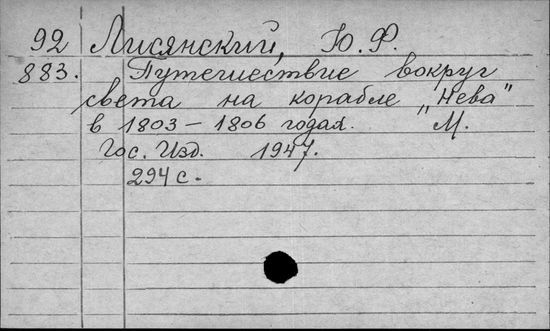 92 Лисянский, Ю. Ф.
883. Путешествие вокруг
света на корабле „Нева"
в 1803 – 1806 годах. М.
Гос. Изд. 1947.
294 с.